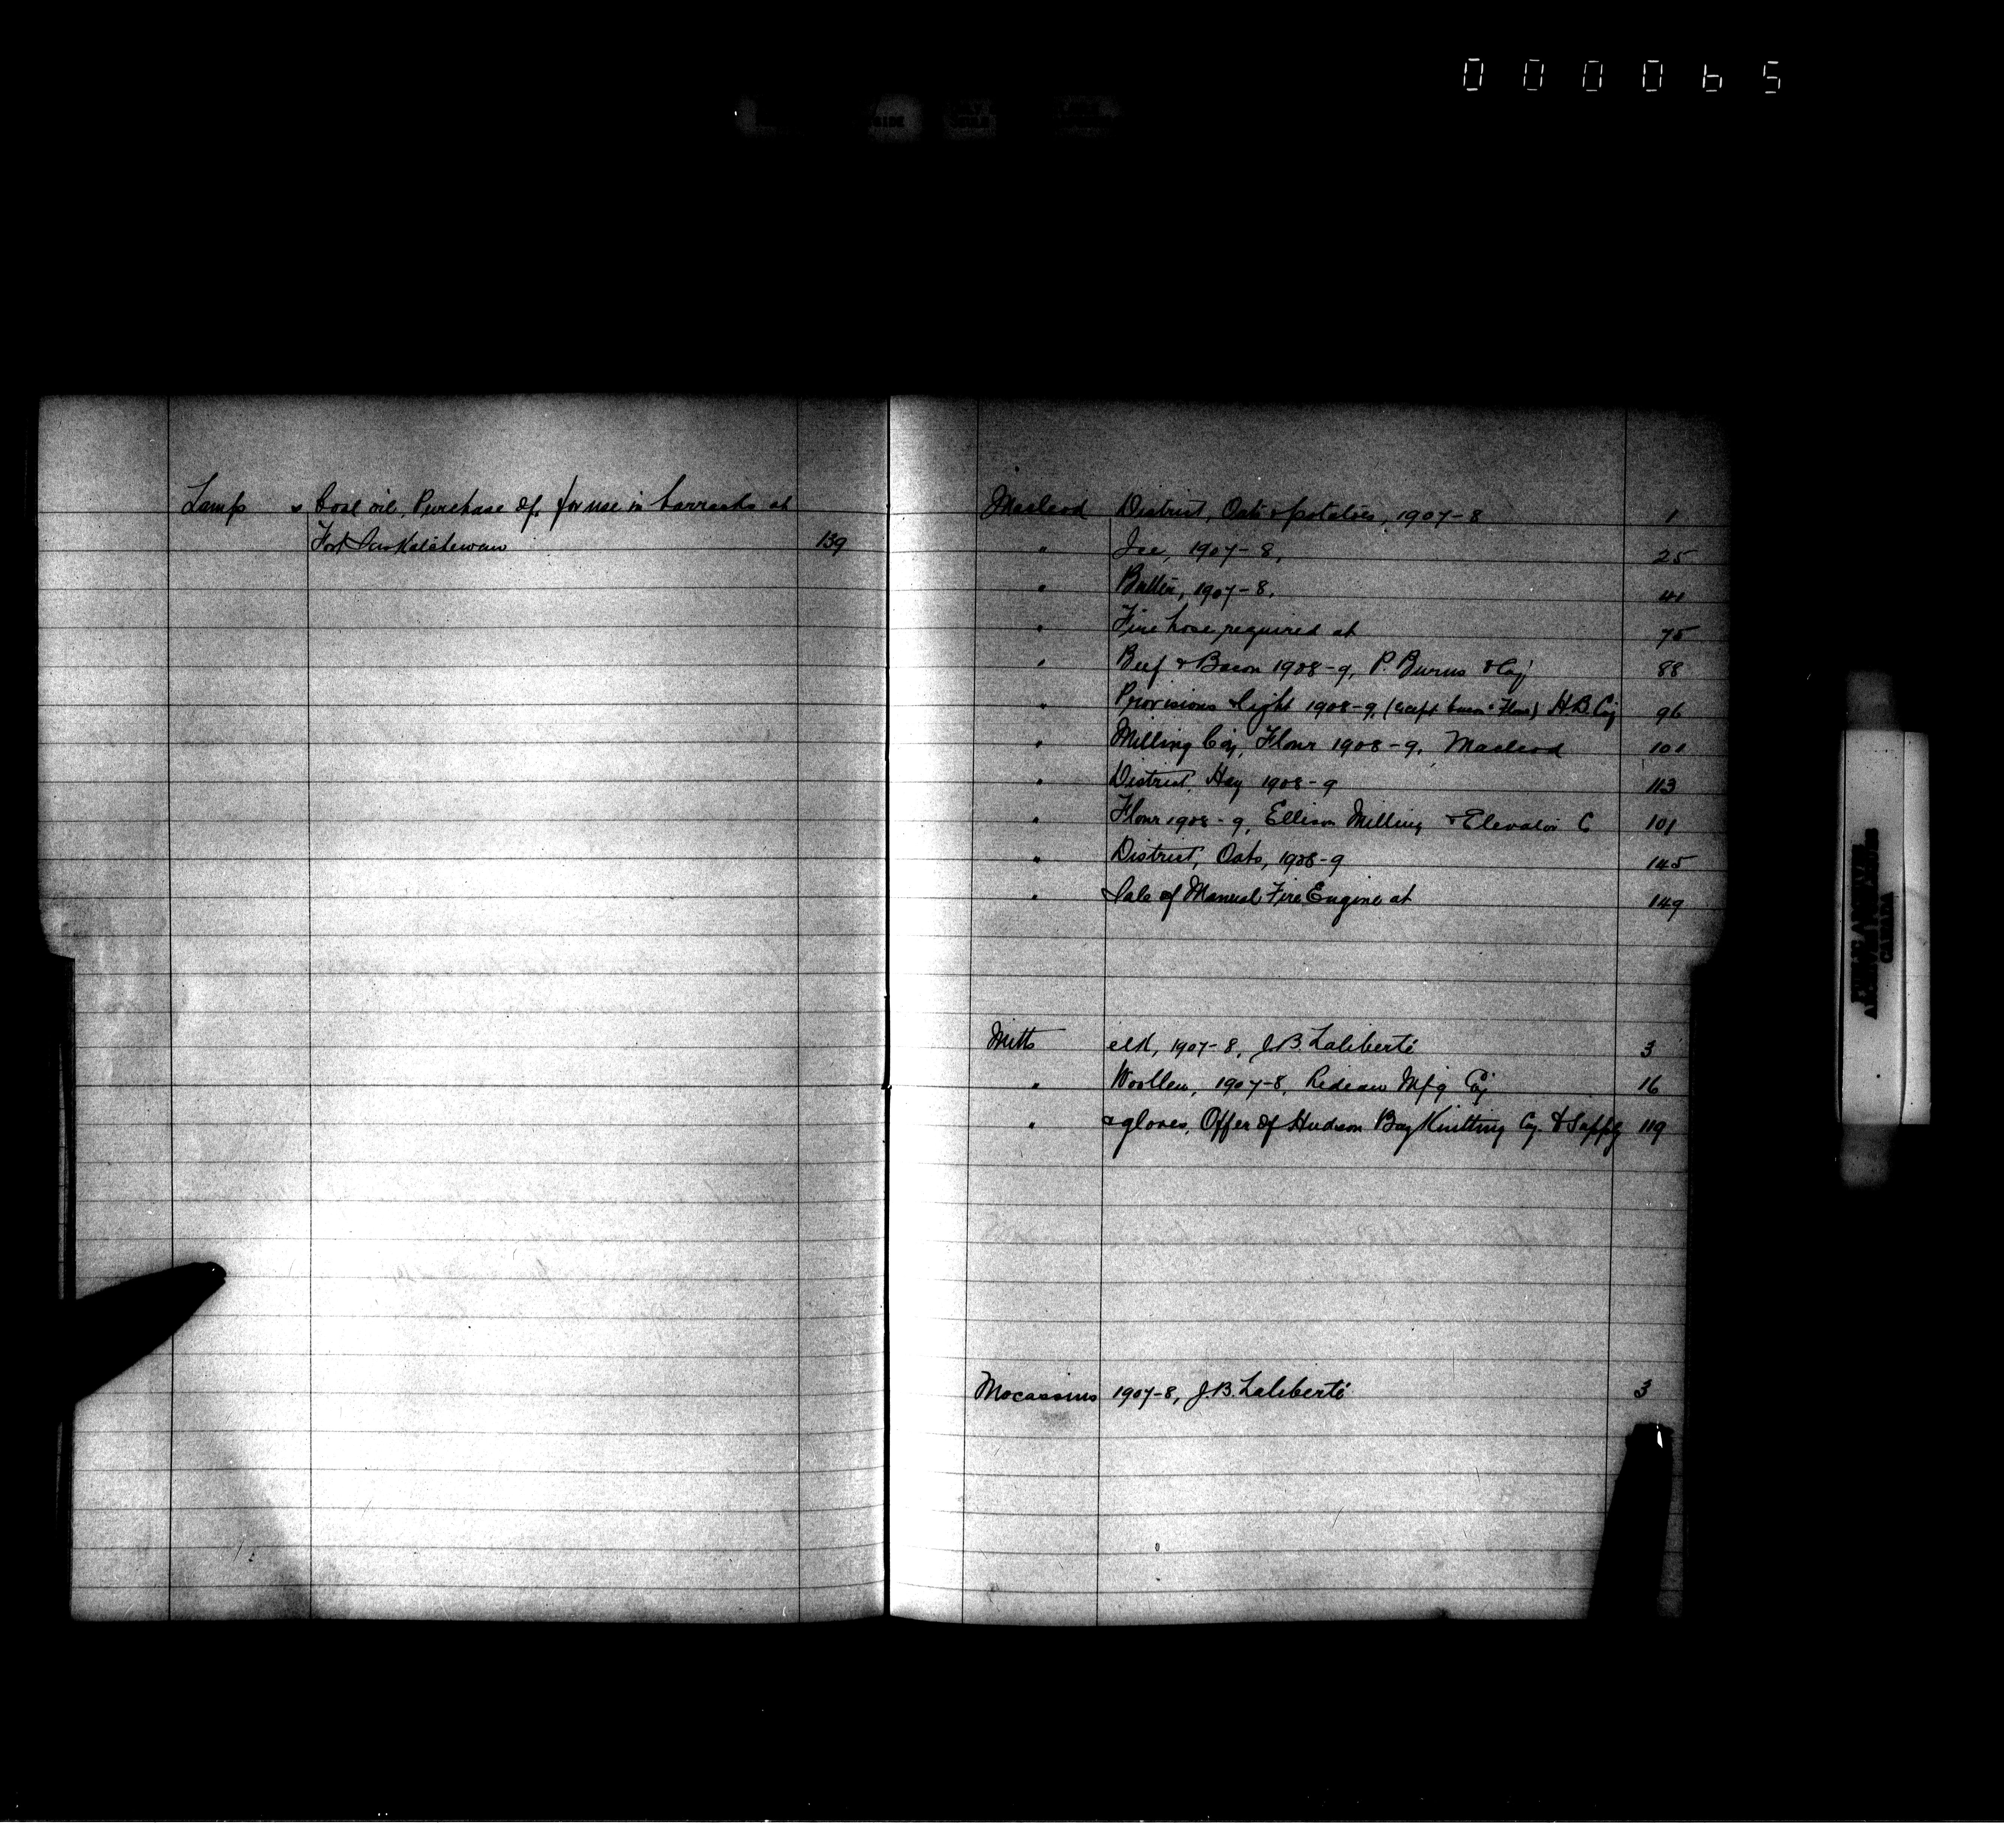 000065
Lamp & Coal oil, Purchase of, for use in barracks at
Fort Saskatchewan 139
Macleod District, Oats & potatoes, 1907-8 1
" Ice, 1907-8, 25
" Butter, 1907-8, 41
" Fire hose required at 75
" Beef & Bacon 1908-9, P. Burns & Coy 88
" Provisions & light 1908-9, (except bacon & Flour) H.B. Coy 96
" Milling Coy, Flour 1908-9, Macleod 101
" District, Hay 1908-9 113
" Flour 1908-9, Ellison Milling & Elevator C 101
" District, Oats, 1908-9 145
" Sale of Manual Fire Engine at 149
Mitts elk, 1907-8, J.B. Laliberté 3
" Woollen, 1907-8, Rideau Mfg Coy 16
" & gloves, Offer of Hudson Bay Knitting Coy. to Supply 119
Mocassins 1907-8, J.B. Laliberté 3